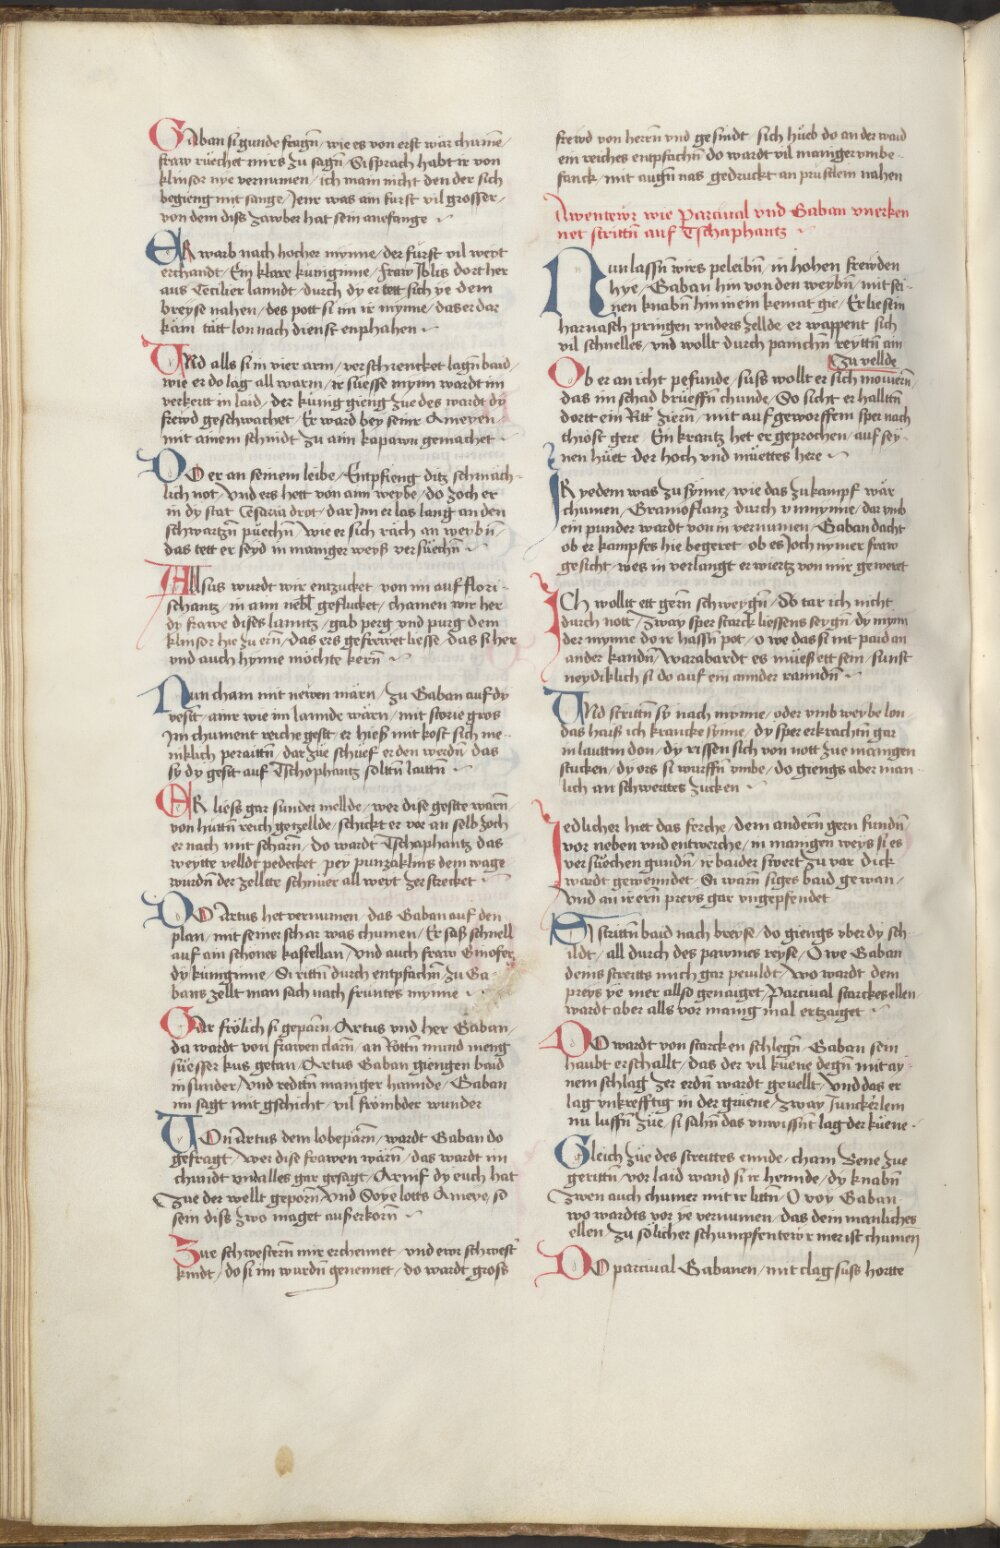 Gaban si gunde fragn̄ / wie es von erst wär chumē /
fraw rüechet mirs zu sagn̄ / Si sprach habt ir von
klinsor nye vernumen / ich main nicht den der sich
begieng mit sange / Jene was am furst vil grosser /
von dem diss zawber hat sein anefange
ER warb nach hocher mynne / der fürst vil weyt
erchandt / Ein klare küniginne / fraw Iblis dort her
aus Cecilier lanndt / durch dy er tett sich ye dem
breyse nahen / des pott si im ir mynne / das er dar
kam tätt lon nach dienst enphahen
UNd alls si in vier arm / verschrencket lagn̄ baid /
wie er do lag all warm / ir süesse mynn wardt im
verkertt in laid / der künig gieng zue des wardt dy
frewd geschwachet / Er ward bey seinr Ameyen /
mit ainem schnidt zu aim kapawn gemachet
DO er an seinem leibe / Entpfieng ditz schmäch-
lich not / Vnd ers hett von aim weybe / do zoch er
in dy stat Cesaria drot / dar Jnn er las lang an den
schwartzn̄ püechn̄ / wie er sich räch an weybn̄ /
das tett er seyd in mainger weyß versüechn̄
Allsus wurdt wir entzucket von im auf flori-
schantz / in aim nebl̄ geflucket / chamen wir her
dy frawe dises lanntz / gab perg vnd purg dem
klinsor hie zu ern̄ / das ers gefrewet liesse / das si her
vnd auch hynne möchte kern̄
Nun cham mit newen märn / zu Gaban auf dy
vestt / ainr wie im lannde wärn / mit storie gros
Jm chument reiche gestt / er hieß mit kost sich me-
niklich peraittn̄ / dar züe schüef er den werdn̄ / das
sy dy gestt auf Tschophantz soltn̄ laittn̄
ER liess gar sunder mellde / wer dise gestte warn̄
von hüttn̄ reich getzellde / schickt er vor an selb zoch
er nach mit scharn̄ / do wardt Tschaphantz das
weytte velldt pedecket / pey punzaklins dem wage
wurdn̄ der zelltte schnüer all weyt zerstrecket
DO Artus het vernumen / das Gaban auf den
plan / mit seiner schar was chumen / Er saß schnell
auf ain schönes kastellan / Vnd auch fraw Ginofer
dy küniginne / Si rittn̄ durch entpfachn̄ zu Ga-
bans zellt man sach nach frūntes mynne
Gar frölich si geparn̄ / Artus vnd her Gaban /
da wardt von frawen clarn̄ / an Röttn̄ mund meng
süesser kus getan / Artus Gaban giengen baid
in sunder / Vnd redttn̄ maniger hannde / Gaban
im sagt mit gschicht / vil frömbder wunder
VOn Artus dem lobepärn̄ / wardt Gaban do
gefragt / wer dise frawen wärn̄ / das wardt im
chundt vnd alles gar gesagt / Arnif dy euch hat
Zue der wellt geporn̄ Vnd Soye lotts Ameye / so
sein diss zwo maget ausserkorn̄
Zue schwestern̄ mir erchennet / vnd ewr schwest̄
kindt / do si im wurdn̄ genennet / do wardt gross
frewd von herrn̄ vnd gesindt sich hüeb do an der waid
ein reiches entpfachn̄ do wardt vil maniger vmbe-
fanck / mit augn̄ nas gedruckt an prüstlem nahen
Awentewr wie Parciual vnd Gaban vnerken
net strittn̄ auf Tschaphantz
Nun lassn̄ wirs peleibn̄ / in hohen frewden
hye / Gaban hin von den weybn̄ / mit sei-
nen knabn̄ hin in ein kemat gie / Er lies ein
harnasch pringen vnders zellde er wappent sich
vil schnelles / vnd wollt durch panichn̄ reyttn̄ ain
Zu vellde
Ob er an icht pefunde / suss wollt er sich mouiern̄ /
das im schad brüeffn̄ chunde / So sicht er halltn̄
dortt ein Ritt̄ ziern̄ / mit auf geworffem sper nach
thiost gere / Ein krantz het er geprochen / auf sey-
nen hüet der hoch vnd müettes here
IR yedem was zu synne / wie das zu kampf wär
chumen / Gramoflanz durch vnmynne / dar vmb
ein punder wardt von in vernumen / Gaban dacht
ob er kampfes hie begeret / ob es Joch nymer fraw
gesicht / wes in verlangt er wiertz von mir gewert
ICh wollt ett gern̄ schweygn̄ / Ob tar ich nicht
durch nott / Zway sper starck liessens seygn̄ / dy mynn
der mynne do ir hassn̄ pot / o we das si nit paid an
ander kandn̄ / warabardt es mües ett sein / sunst
neydiklich si do auf ein annder ranndn̄
UNd strittn̄ sy nach mynne / oder vmb weybe lon
das haiß ich krancke synne / dy sper erkrachtn̄ gar
in lauttm don / dy rissen sich von nott zue maingen
stucken / dy ors si wurffn̄ vmbe / do giengs aber man-
lich an schwerttes zucken
Iedlicher hiet das ferche / dem andern̄ gern fundn̄ /
vor neben vnd entwerche / in maingen weys si es
versüechen gundn̄ / ir baider swert zu var dick
wardt gewenndet / Si warn̄ siges baid gewan /
Vnd an ir ern̄ preys gar vngepfendet
SI strittn̄ baid nach breyse / do giengs vber dy sch-
ildt / all durch des pawmes reyse / O we Gaban
deins streitts mich gar peuildt / wo wardt dem
preys ye mer allso genaiget / Parciual starckes ellen
wardt aber alls vor manig mal ertzaiget
DO wardt von starcken schlegn̄ / Gaban sein
haubt erschallt / das der vil küene degn̄ mit ay-
nem schlag zer erdn̄ wardt geuellt / Vnd das er
lag vnkrefftig in der grüene / zway Junckerlein
nu luffn̄ züe / si sahn̄ das vnwissn̄t lag der küene
Gleich züe des streittes ennde / cham Bene zue
gerittn̄ / vor laid wand si ir hennde / dy knabn̄
Zwen auch chumer mit ir littn̄ / O voy Gaban
wo wardts vor ye vernumen / das dein manliches
ellen zu sölicher schumpfentewr mer ist chumen
DO parciual Gabanen / mit clag suss hortte